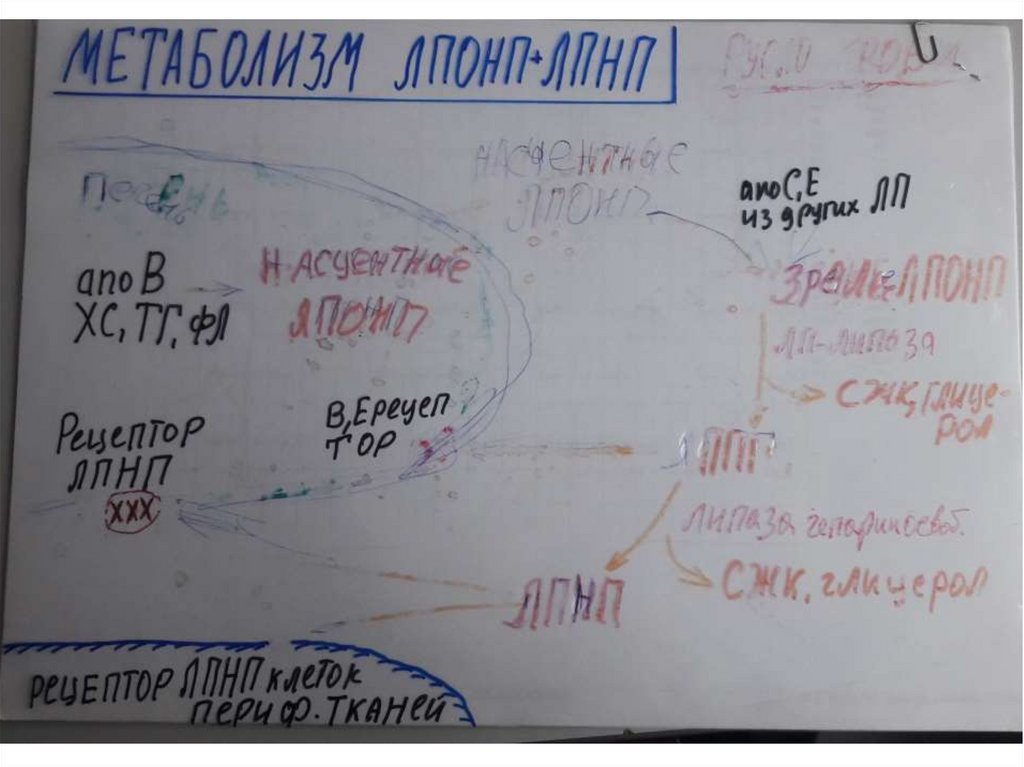 МЕТАБОЛИЗМ ЛПОНП+ЛПНП
НАСЦЕНТНЫЕ
ЛПОНП
Печень
апо С, Е
из других ЛП
апо В
ХС, ТГ, ФЛ
НАСЦЕНТНЫЕ
ЛПОНП
Зрелые ЛПОНП
ЛП-липаза
СЖК, глице-
рол
В, Е рецеп
тор
Рецептор
ЛПНП
ХХХ
ЛПП
липаза гепариносвоб.
СЖК, глицерол
ЛПНП
РЕЦЕПТОР ЛПНП клеток
периф. тканей